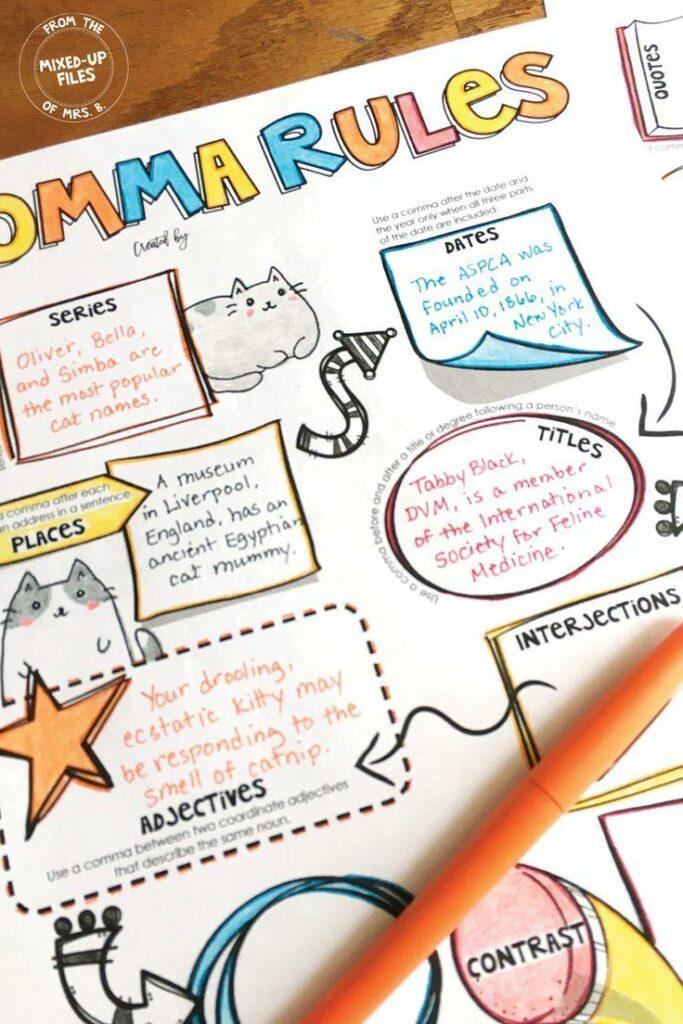 FROM THE
MIXED-UP
FILES
OF MRS. B.
OMMA RULES
Created by
QUOTES
Use a comma after the date and
the year only when all three parts
of the date are included.
DATES
The ASPCA was
founded on
April 10, 1866, in
New York
City.
SERIES
Oliver, Bella,
and Simba are
the most popular
cat names.
Use a comma before and after a title or degree following a person's name
TITLES
Tabby Black,
DVM, is a member
of the International
Society for Feline
Medicine.
a comma after each
an address in a sentence.
PLACES
A museum
in Liverpool,
England, has an
ancient Egyptian
cat mummy.
INTERJECTIONS
Your drooling,
ecstatic kitty may
be responding to the
smell of catnip.
ADJECTIVES
Use a comma between two coordinate adjectives
that describe the same noun.
CONTRAST